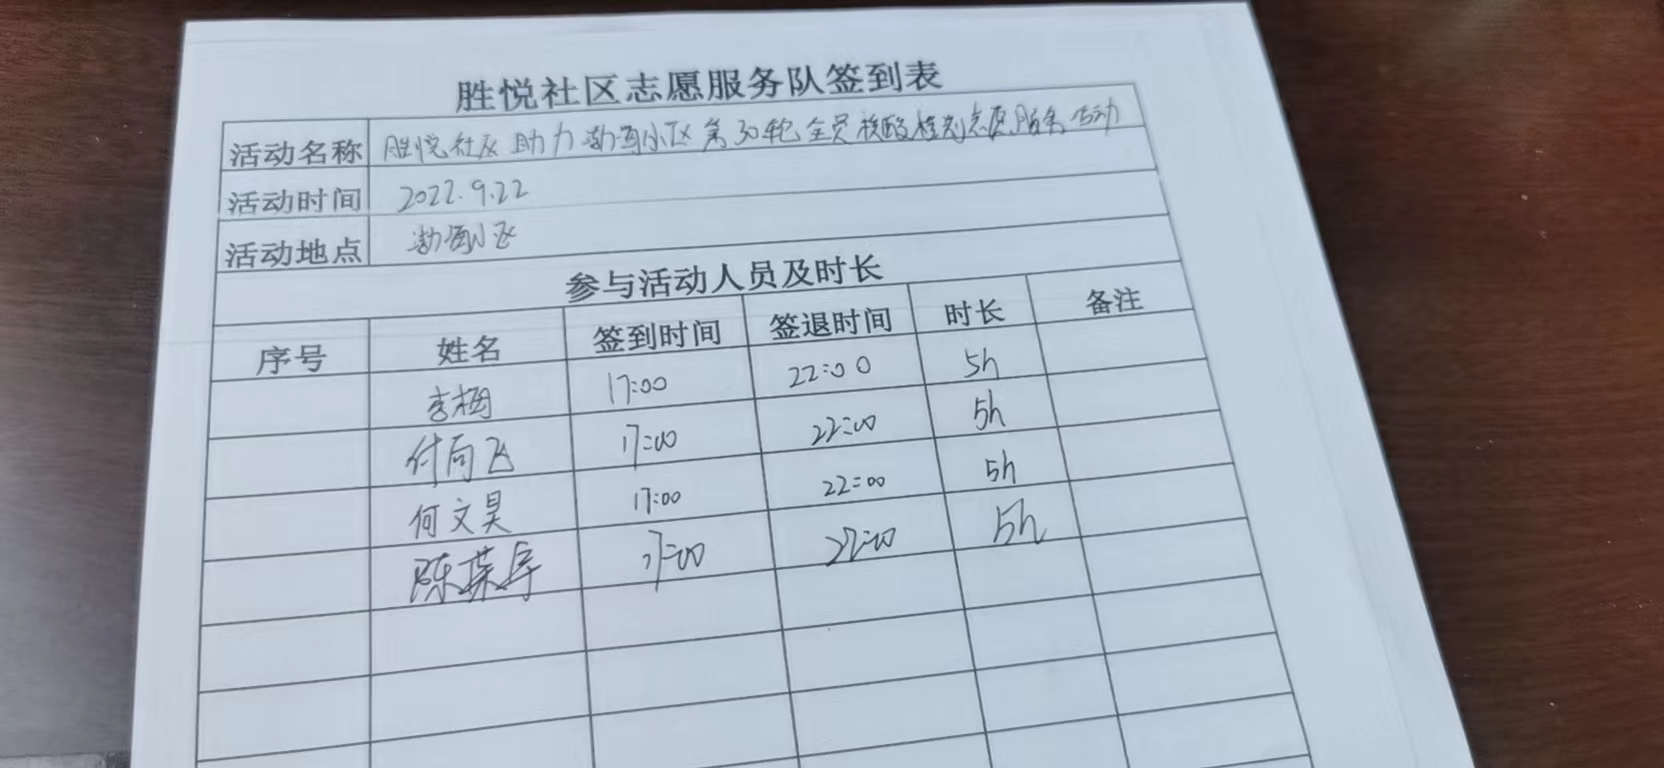 胜悦社区志愿服务队签到表
活动名称 胜悦社区助力渤海小区第30轮全员核酸检测志愿服务活动
活动时间 2022.9.22
活动地点 渤海小区
参与活动人员及时长
序号 姓名 签到时间 签退时间 时长 备注
李梅 17:00 22:00 5h
付向飞 17:00 22:00 5h
何文昊 17:00 22:00 5h
陈 17:00 22:00 5h